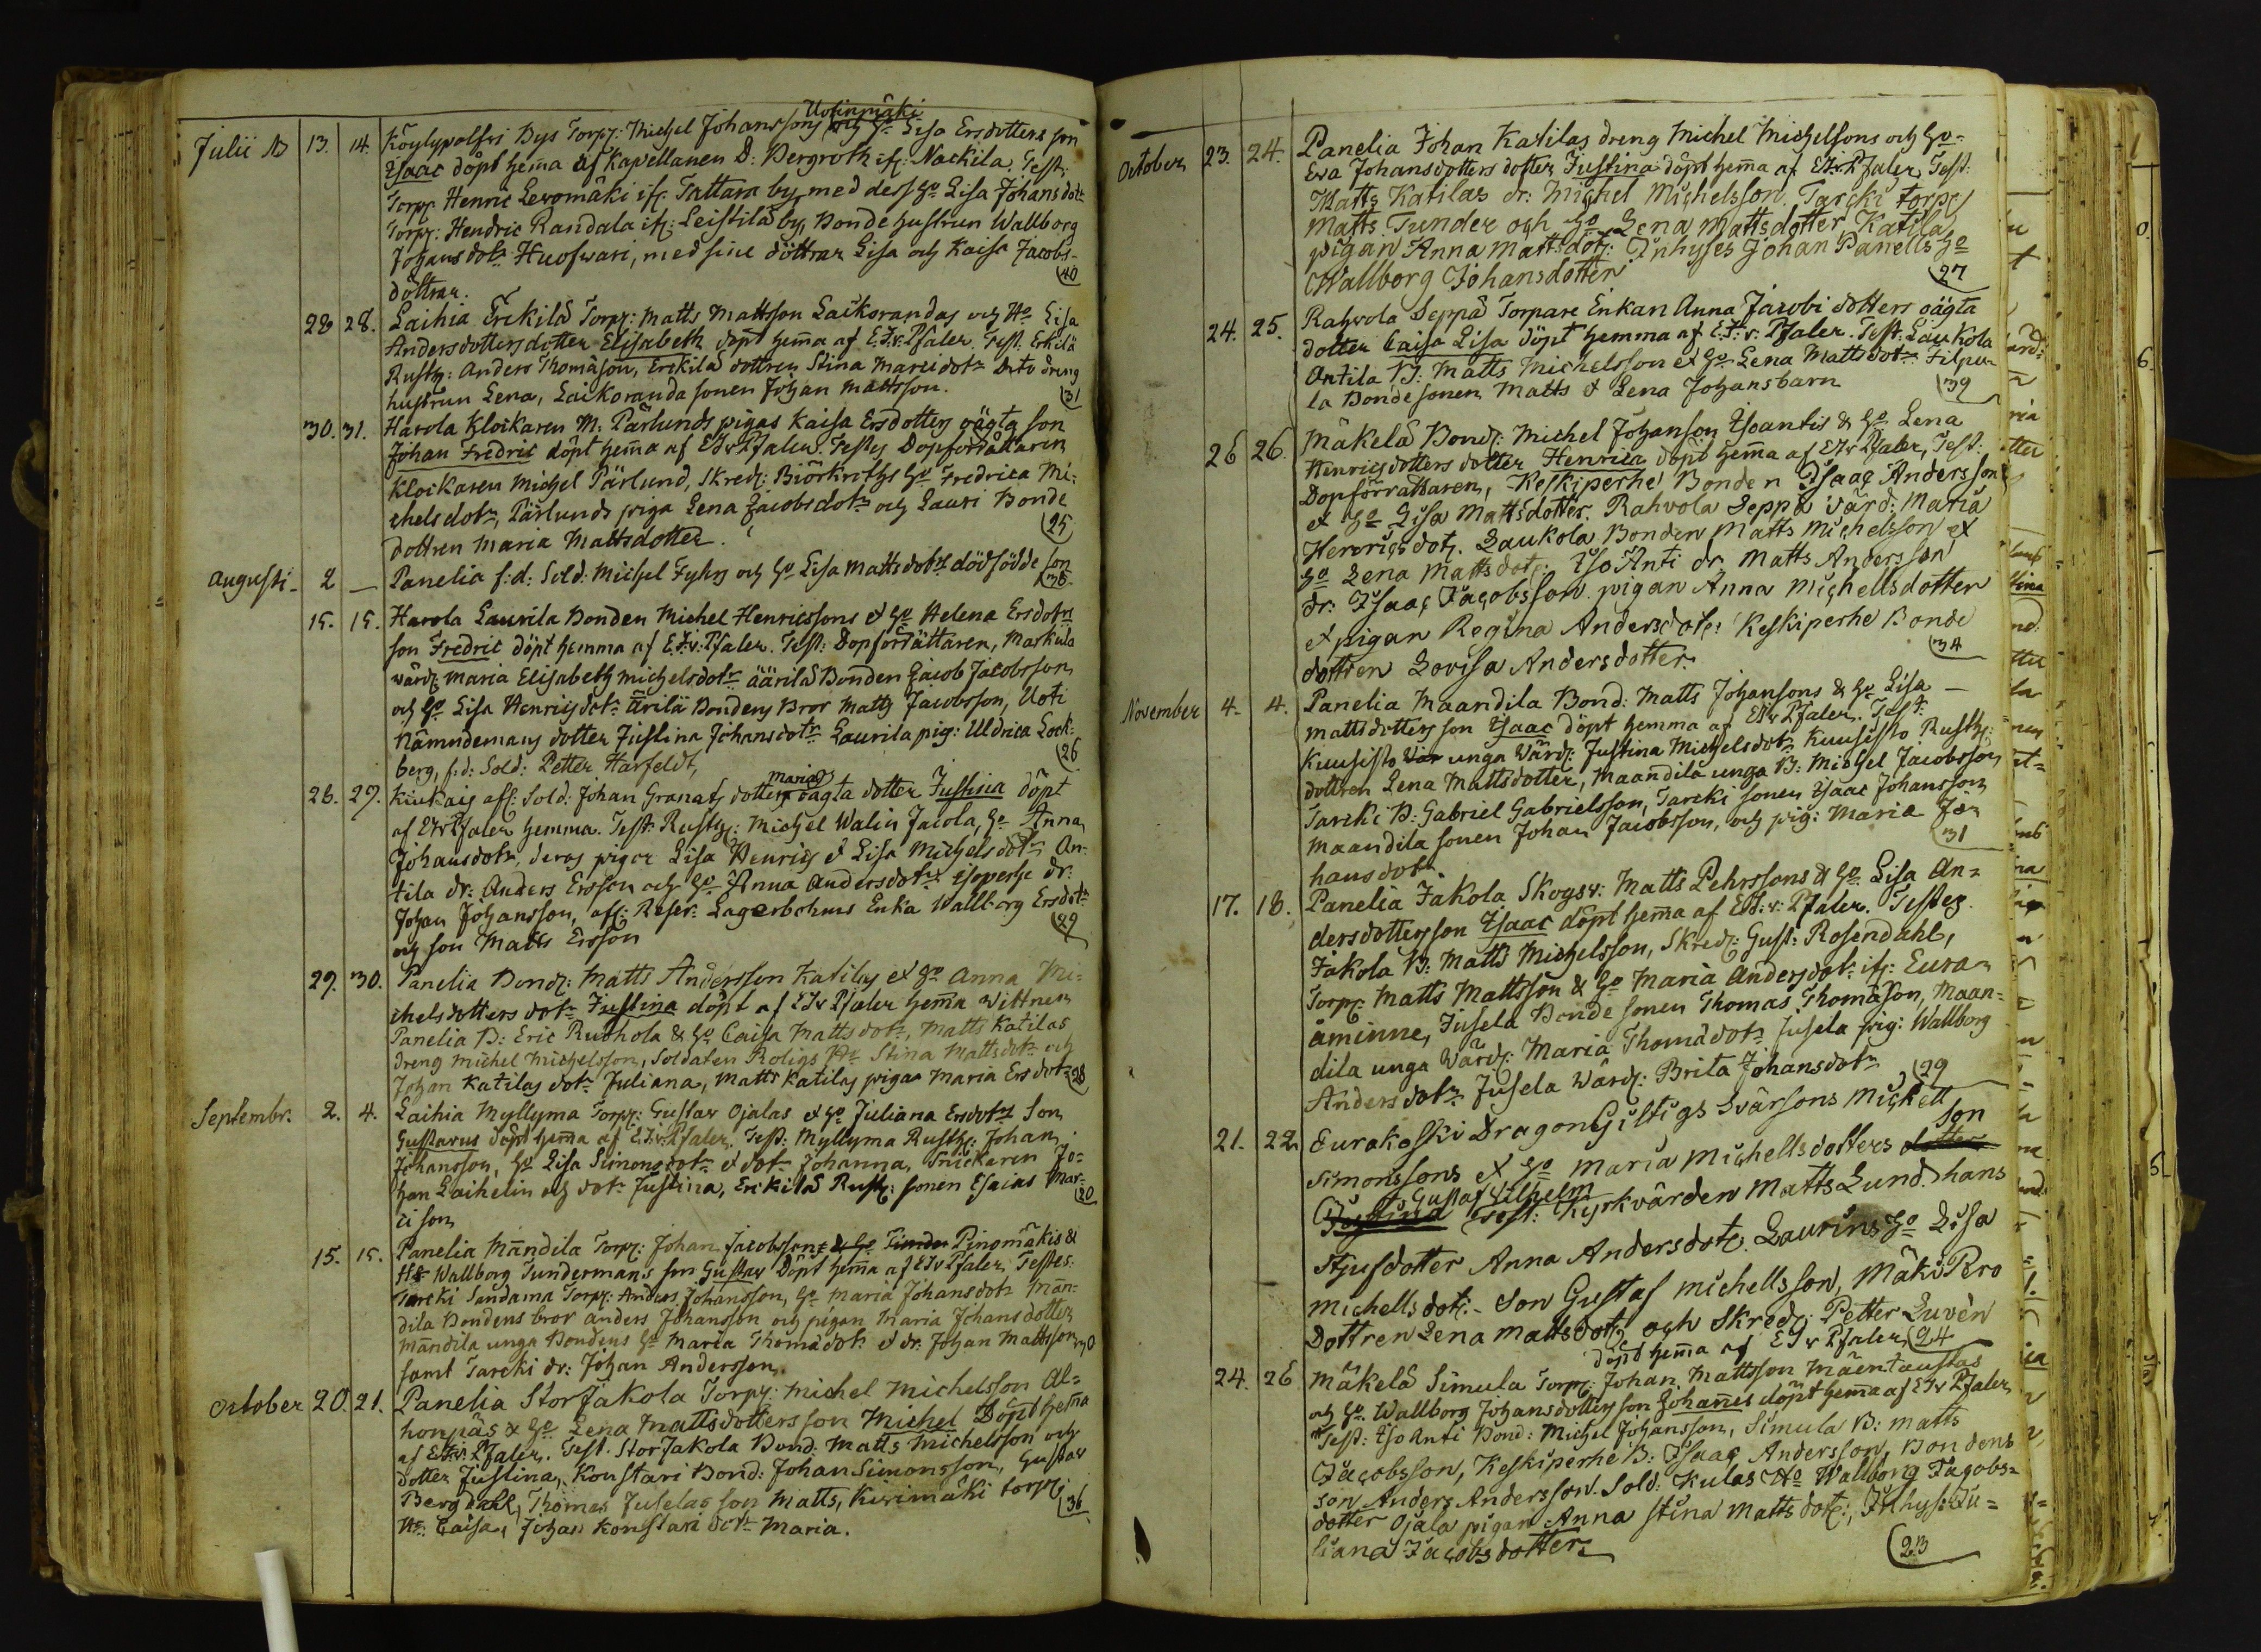 Uotinmäki
Julii 13. 14. Köylypolfvi Bys Torp: Michel Johanssons och Ho Lisa Ersdotters son
Isaac döpt hema af Kapellanen D: Bergroth if: Nackila. Test:
Torp: Henric Levomäki if: Tattara by med dess ho Lisa Johansdotr
Torp: Hendric Randala if: Leistilä by, Bonde hustrun Wallborg
Johansdotr Huofwari, med sine döttrar Lisa och Kaisa Jacobs-
döttrar. (40
28 28. Laihia Erckilä Torp: Matts Mattsson Laikorandas och Ho Lisa
Andersdotters dotter Elisabeth döpt hema af E.I.v. Pfaler. Test: Erkilä
Rusth: Anders Thomæson, Erckilä dottren Stina Marcidotr Dito dreng
hustrun Lena, Laikoranda sonen Johan Mattsson. (31
30. 31. Harola Klockaren M: Pärlunds pigas Kaisa Ersdotters oägta son
Johan Fredric döpt hema af EIv Pfaler. Testes Dopförrättaren
Klockaren Michel Pärlund, Skred: Biörkroths ho Fredrica Mi-
chelsdotr, Pärlunds piga Lena Jacobsdotr och Lauri Bonde
dottren Maria Mattsdotter. (25
Augusti 2 — Panelia f:d: Sold: Michel Fyhrs och ho Lisa Mattsdotrs dödfödde son
(36
15. 15. Harola Laurila Bonden Michel Henricssons et ho Helena Ersdotrs
son Fredric döpt hemma af E.I.v. Pfaler. Test: Dopförrättaren, Markula
wärd: Maria Elisabeth Michelsdotr Äärilä Bonden Jacob Jacobsson
och ho Lisa Henricsdotr Ärilä Bondens Bror Matts Jacobsson, Uoti
Nämndemans dotter Justina Johansdotr Laurila pig: Uldrica Lock-
berg, f:d: Sold: Petter Harfeldt, (26
26. 27. Kiukais aff: Sold: Johan Granats dotters Marias oägta dotter Justina döpt
af EIv Pfaler hemma. Test: Rusth: Michel Walin Jacola, ho Anna
Johansdotr, deras pigor Lisa Henrics et Lisa Michelsdotr An-
tila dr: Anders Ersson och ho Anna Andersdotr Isoperhe dr:
Johan Johansson, aff: Reser: Lagerbohms Enka Wallborg Ersdotr
och son Matts Ersson (29
29. 30. Panelia Bond: Matts Andersson Katilas et ho Anna Mi-
chelsdotters dotr Justina döpt af EIv Pfaler hema Wittnen
Panelia B: Eric Ruohola & ho Caisa Mattsdotr, Matts Katilas
dreng Michel Michelsson, Soldaten Roligs Ho Stina Mattsdotr och
Johan Katilas dotr Juliana, Matts Katilas pigan Maria Ersdotr (28
Septembr. 2. 4. Laihia Myllyma Torp: Gustav Ojalas et ho Juliana Ersdotrs Son
Gustavus döpt hema af E.I.v. Pfaler. Test: Myllyma Rusth: Johan
Johansson, ho Lisa Simonsdotr et dotr Johanna, Snickaren Jo-
han Laihelin och dotr Justina, Erckilä Rusth: sonen Esaias Mar-
ci son (20
15. 15. Panelia Mandila Torp: Johan Jacobssons & ho Tunder Pinomäkis &
Ho Wallborg Tundermans son Gustav Döpt hema af EIv Pfaler Testes:
Tarcki Sandama Torp: Anders Johansson, ho Maria Johansdotr Män-
dila Bondens bror Anders Johansson och pigan Maria Johansdotter
Mandila unga Bondens ho Maria Thomædotr et dr. Johan Mattsson 30
samt Tarcki dr: Johan Andersson.
October 20. 21. Panelia StorJakola Torp: Michel Michelsson Al-
honpäs & ho Lena Mattsdotters son Michel Döpt hema
af E.I.v. Pfaler. Test. StorJakola Bond: Matts Michelsson och
dotter Justina, Konstari Bond: Johan Simonsson, Gustav
Bergdahl, Thomas Juselas son Matts, Kivimäki torp:
Ho: Caisa, Johan Konstari dotr Maria. (36
October 23. 24. Panelia Johan Katilas dreng Michel Michelsons och ho-
Eva Johansdotters dotter Justina döpt hema af E.I.v. Pfaler, Test:
Matts Katilas dr: Michel Michelsson. Tarcki torp:
Matts Tunder och ho Lena Mattsdotter Katila
pigan Anna Mattsdotr: Inhyses Johan Panells ho
Wallborg Johansdotter (27
24. 25. Rahvola Seppä Torpare Enkan Anna Jacobi dotters oägta
dotter Caisa Lisa döpt hemma af E.I.v. Pfaler. Test: Laukola
Antila B: Matts Michelsson et ho Lena Mattsdotr Filpu-
la Bonde sonen Matts & Lena Johansbarn (39
26 26. Mäkelä Bond: Michel Johanson Isoantis & ho Lena
Henricsdotters dotter Henrica döpt hema af EIv Pfaler, Test:
Dopförrättaren, Keskiperhe Bonden Isaac Andersson
et ho Lisa Mattsdotter. Rahvola Seppä värd: Maria
Henricsdotr. Laukola Bonden Matts Michelsson et
ho Lena Mattsdotr: Iso Anti dr. Matts Andersson
dr: Isaac Jacobsson. pigan Anna Michellsdotter
et pigan Regina Andersdotr: Keskiperhe Bonde
dottren Lovisa Andersdotter. (34
November 4. 4. Panelia Maandila Bond: Matts Johansons & ho Lisa —
Mattsdotters son Isaac döpt hemma af EIv Pfaler. Test:
Kuusisto unga Wärd: Justina Michelsdotr Kuusisto Rusth:
dottren Lena Mattsdotter, Maandila unga B: Michel Jacobsson
Tarcki B: Gabriel Gabrielsson, Tarcki sonen Isaac Johansson
Maandila sonen Johan Jacobsson, och pig: Maria Jo-
hansdotr. (31
17. 18. Panelia Jakola Skogsv: Matts Pehrssons & ho Lisa An-
dersdotters son Isaac döpt hema af E.I.v. Pfaler. Testes
Jakola B: Matts Michelsson, Skred: Gust: Rosendahl,
Torp: Matts Mattsson & ho Maria Andersdotr if: Eura-
åminne, Jusela Bonde sonen Thomas Thomæson, Maan-
dila unga Wärd: Maria Thomædotr Jusela pig: Wallborg
Andersdotr Jusela Wärd: Brita Johansdotr (29
21. 22 Eurakoski Dragon Gistigs Svärsons Michell
Simonssons et ho Maria Michellsdotters dotter son
Justina Gustaf Vilhelm Test: Kyrkvärden Matts Lund. hans
Styfdotter Anna Andersdotr. Laurins ho Lisa
Michellsdotr. Son Gustaf Michellsson, Mäki Pero
Dottren Lena Mattsdotr och Skred: Petter Luvén
döpt hema af EIv Pfaler (24
24. 26 Mäkelä Simula Torp: Johan Mattsson Mäentaustas
och ho Wallborg Johansdotters son Johannes döpt hema af EIv Pfaler
Test: Iso Anti Bond: Michel Johansson, Simula B: Matts
Jacobsson, Keskiperhe B: Isaac Andersson, Bondens
son Anders Andersson. Sold: Kulas Ho Wallborg Jacobs-
dotter Ojala pigan Anna Stina Mattsdotr:, Inhys: Ju-
liana Jacobsdotter. (23